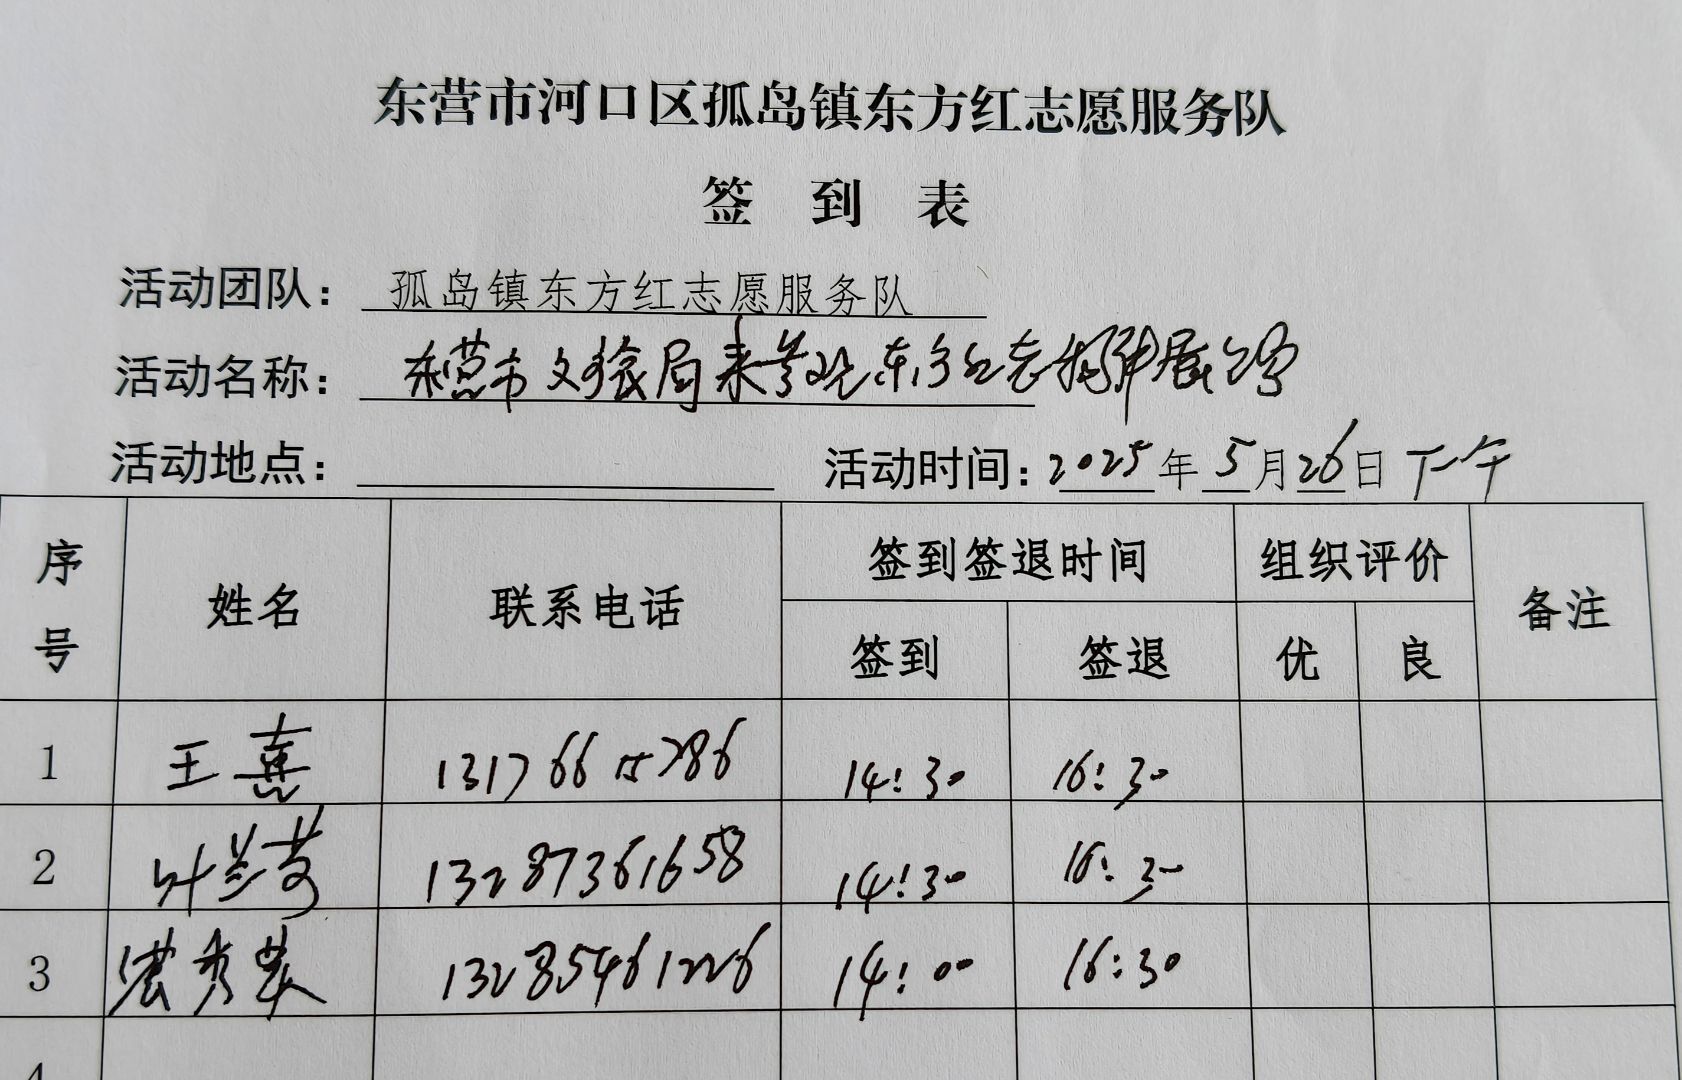 东营市河口区孤岛镇东方红志愿服务队
签 到 表
活动团队： 孤岛镇东方红志愿服务队
活动名称： 东营市文旅局来参观东方红志精神展馆
活动地点： 活动时间：2025年5月26日下午
序号 姓名 联系电话 签到签退时间 组织评价 备注
签到 签退 优 良
1 王熹 13176615786 14:30 16:30
2 叶兰芳 13287361658 14:30 16:30
3 秀 13285461226 14:00 16:30
4